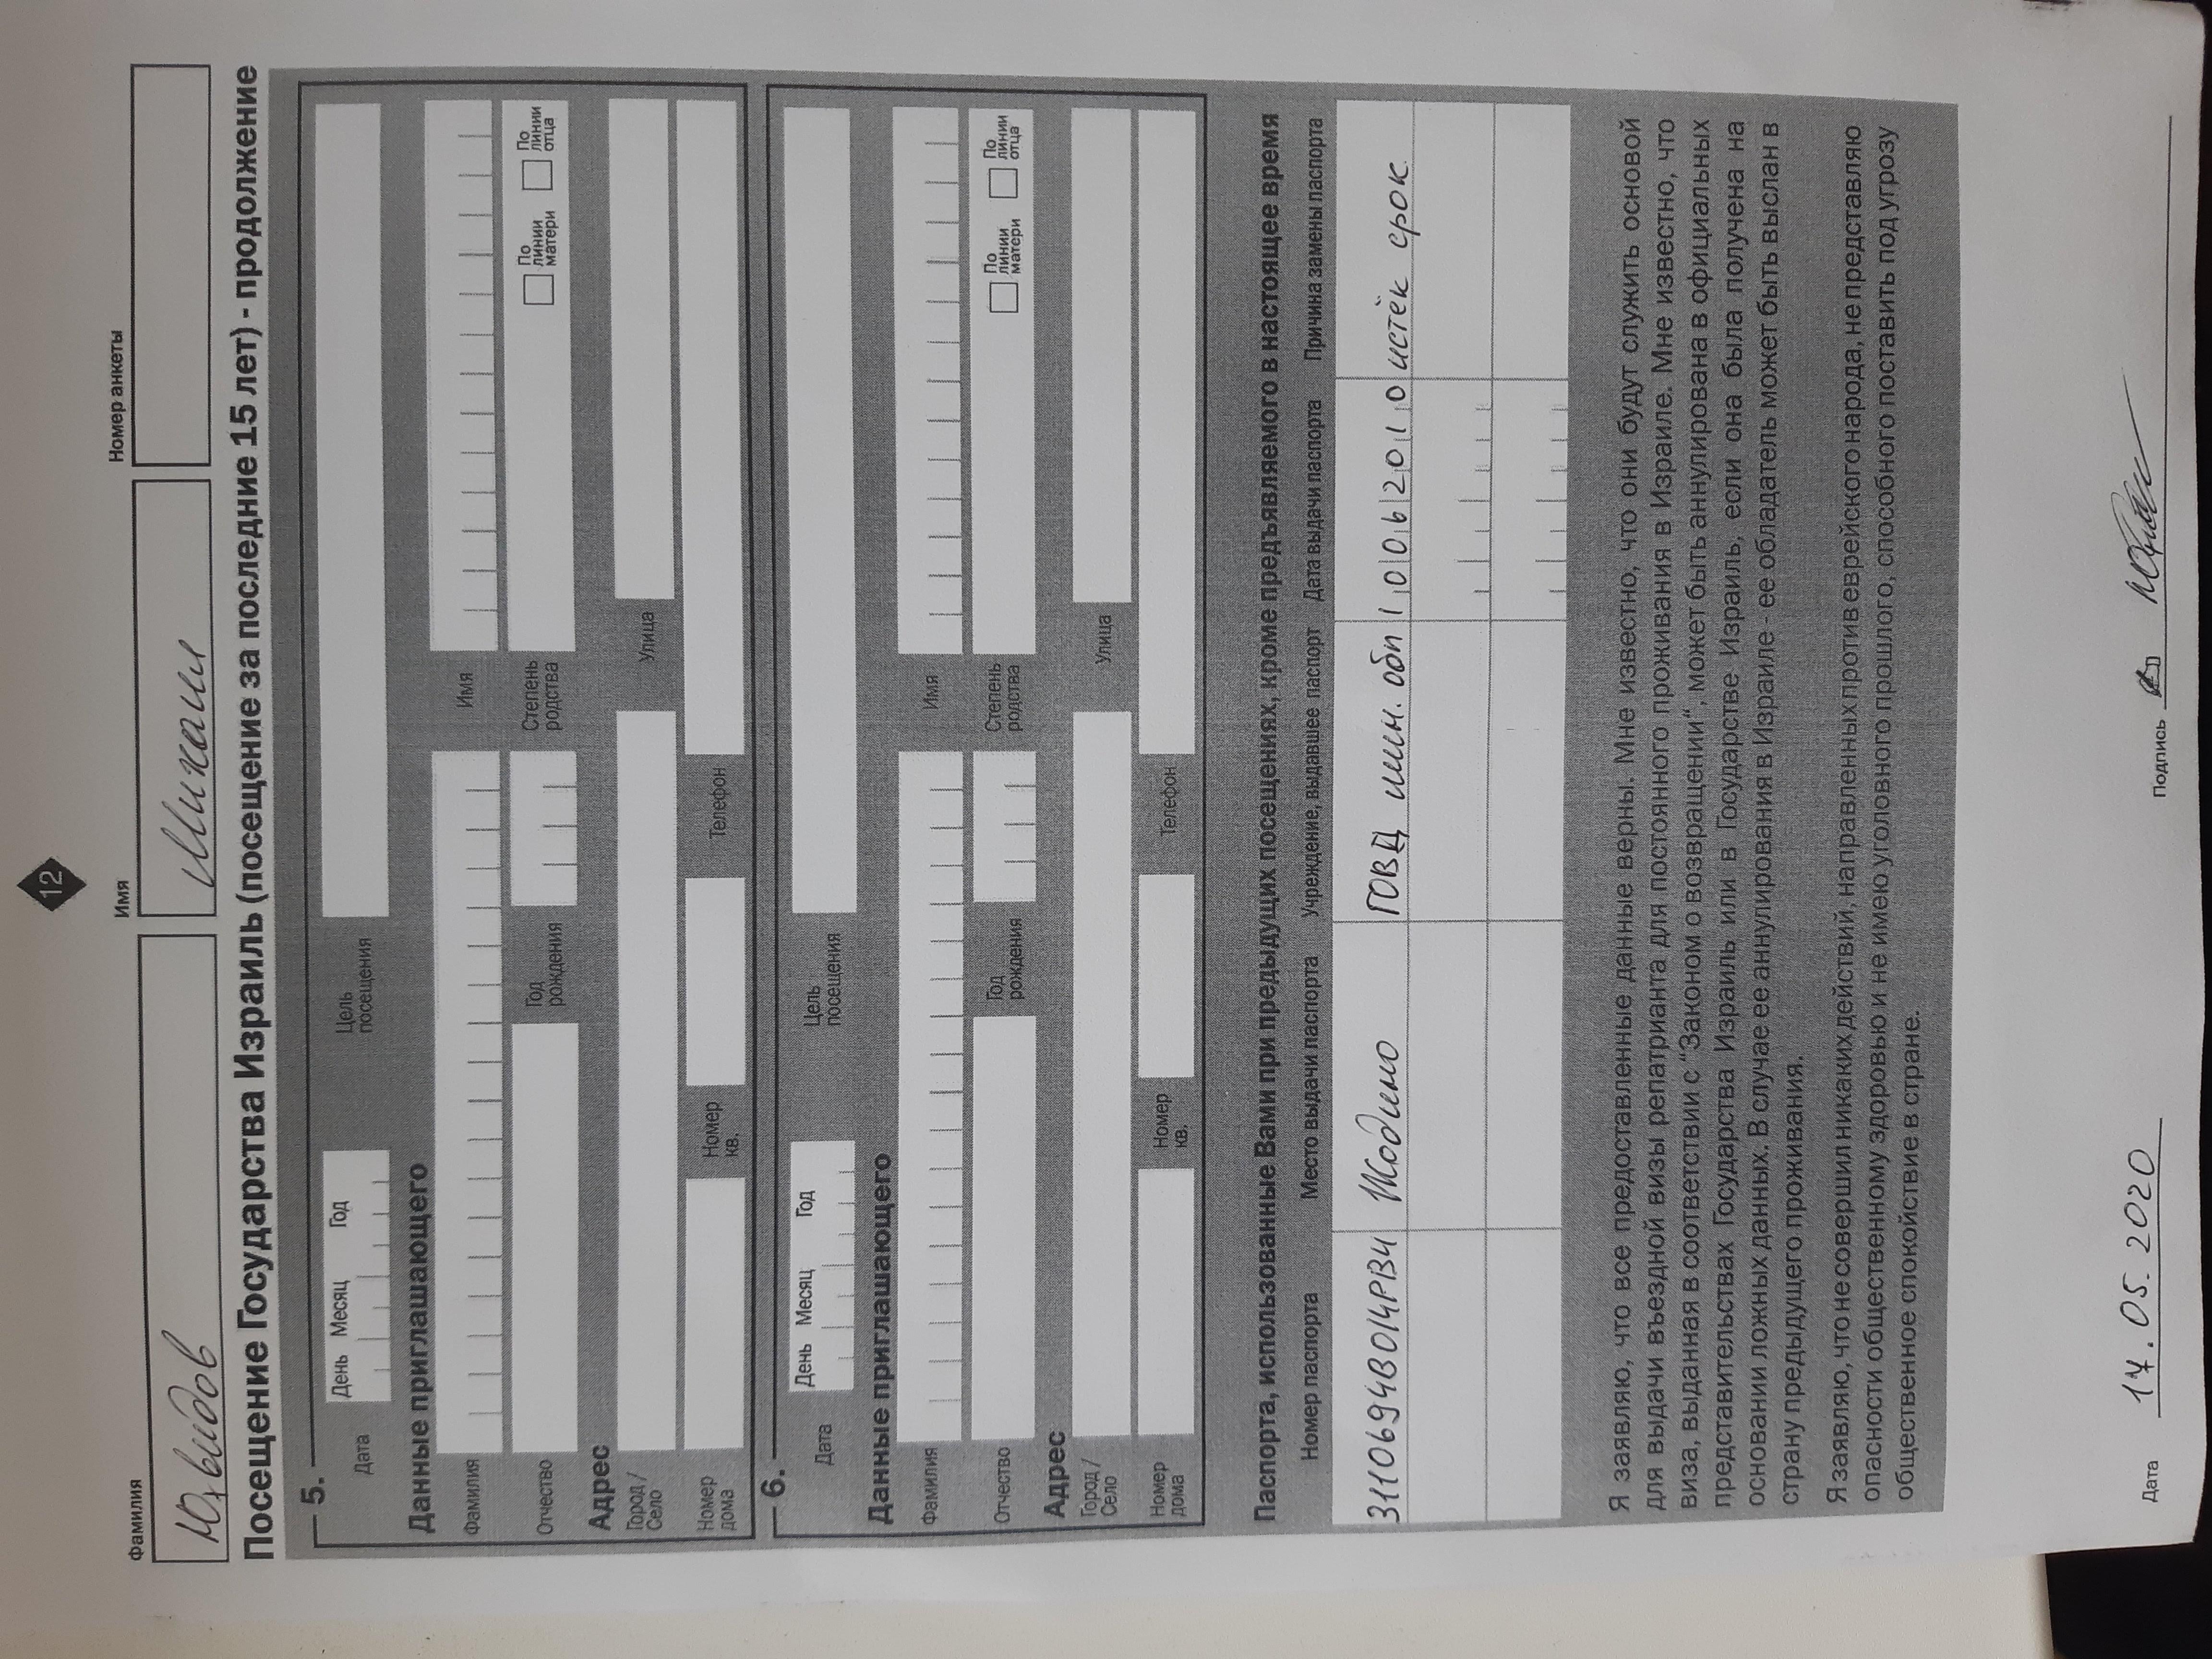 12
Фамилия Имя Номер анкеты
Юхвидов Михаил
Посещение Государства Израиль (посещение за последние 15 лет) - продолжение
5.
День Месяц Год
Дата Цель посещения
Данные приглашающего
Фамилия Имя
Отчество Год рождения Степень родства По линии матери По линии отца
Адрес
Город / Село Улица
Номер дома Номер кв. Телефон
6.
День Месяц Год
Дата Цель посещения
Данные приглашающего
Фамилия Имя
Отчество Год рождения Степень родства По линии матери По линии отца
Адрес
Город / Село Улица
Номер дома Номер кв. Телефон
Паспорта, использованные Вами при предыдущих посещениях, кроме предъявляемого в настоящее время
Номер паспорта Место выдачи паспорта Учреждение, выдавшее паспорт Дата выдачи паспорта Причина замены паспорта
3110694B014PB4 Жодино ГОВД мин. обл 10062010 истёк срок
Я заявляю, что все предоставленные данные верны. Мне известно, что они будут служить основой
для выдачи въездной визы репатрианта для постоянного проживания в Израиле. Мне известно, что
виза, выданная в соответствии с "Законом о возвращении", может быть аннулирована в официальных
представительствах Государства Израиль или в Государстве Израиль, если она была получена на
основании ложных данных. В случае ее аннулирования в Израиле - ее обладатель может быть выслан в
страну предыдущего проживания.
Я заявляю, что не совершил никаких действий, направленных против еврейского народа, не представляю
опасности общественному здоровью и не имею уголовного прошлого, способного поставить под угрозу
общественное спокойствие в стране.
Дата 17.05.2020 Подпись